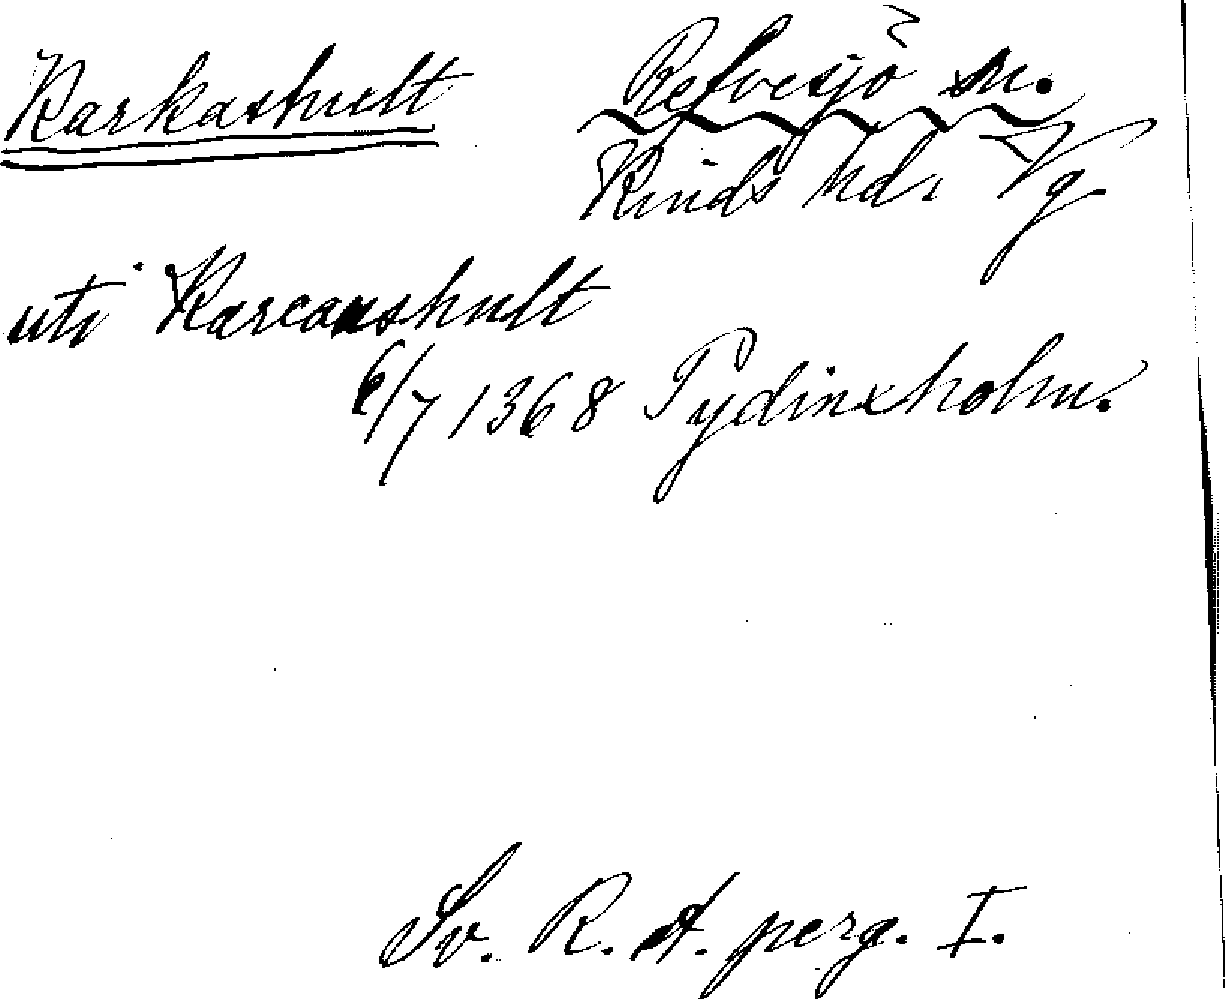 Karkashult Refvesjö sn.
Kinds hd. Vg
uti Karcanshult
6/7 1368 Pydinxholm.
Sv. R. A. perg. I.